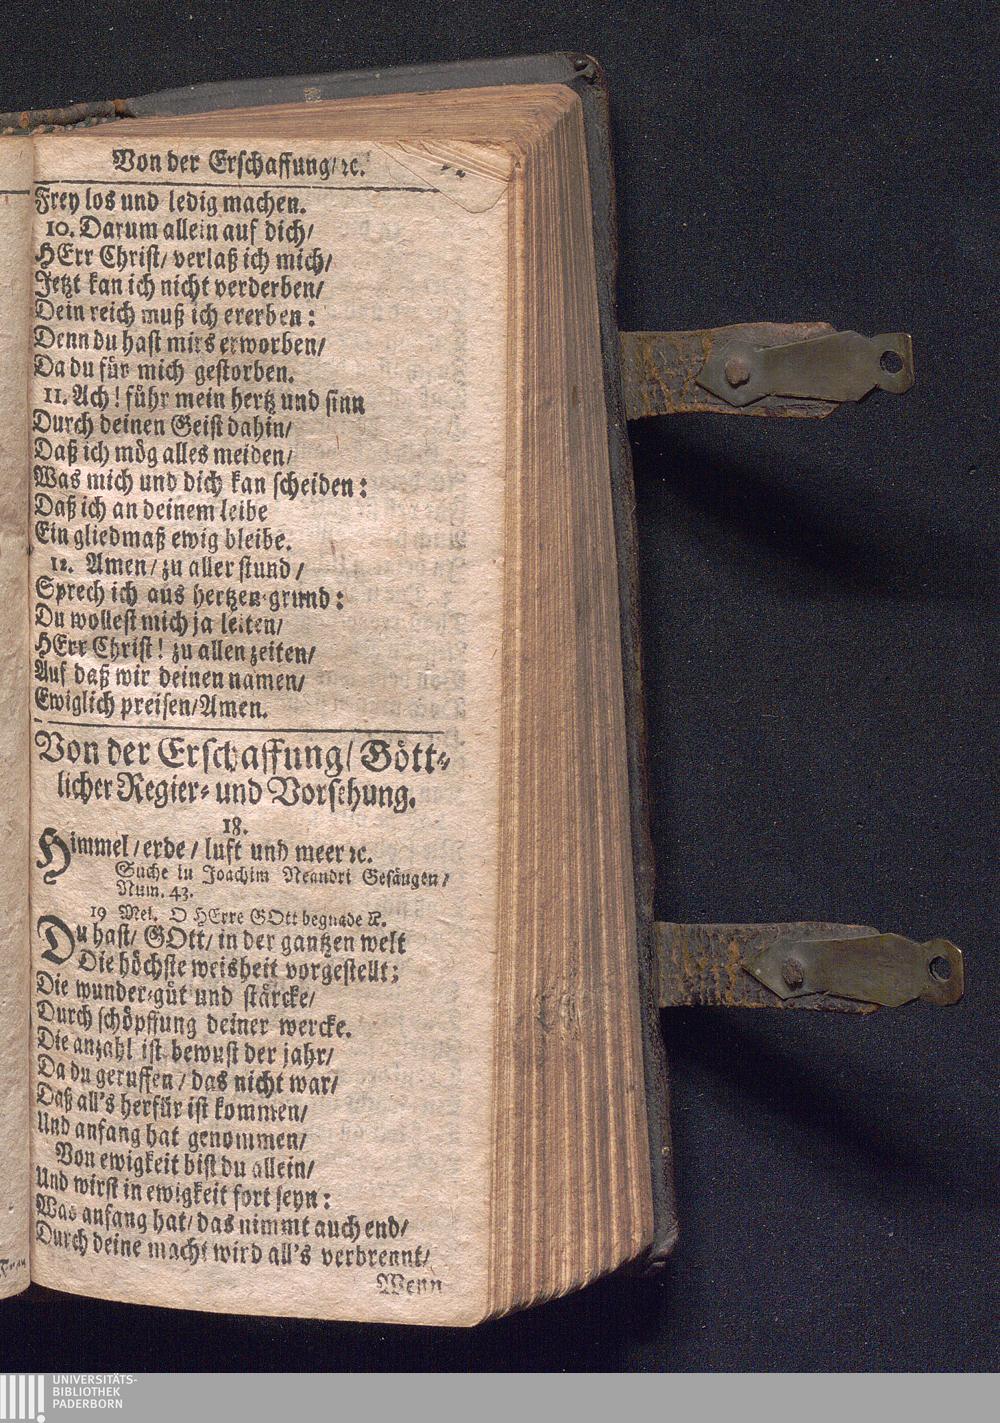 Von der Erschaffung/ꝛc.
Frey los und ledig machen.
10. Darum allein auf dich/
HErr Christ/ verlaß ich mich/
Jetzt kan ich nicht verderben/
Dein reich muß ich ererben:
Denn du hast mirs erworben/
Da du für mich gestorben.
11. Ach! führ mein hertz und sinn
Durch deinen Geist dahin/
Daß ich mög alles meiden/
Was mich und dich kan scheiden:
Daß ich an deinem leibe
Ein gliedmaß ewig bleibe.
12. Amen/ zu aller stund/
Sprech ich aus hertzen-grund:
Du wollest mich ja leiten/
HErr Christ! zu allen zeiten/
Auf daß wir deinen namen/
Ewiglich preisen/Amen.
Von der Erschaffung/ Gött-
licher Regier- und Vorsehung.
18.
Himmel/erde/ luft und meer ꝛc.
Suche in Joachim Neandri Gesängen/
Num. 43.
19 Mel. O HErre GOtt begnade ꝛc.
Du hast/ GOtt/ in der gantzen welt
Die höchste weisheit vorgestellt;
Die wunder-güt und stärcke/
Durch schöpffung deiner wercke.
Die anzahl ist bewust der jahr/
Da du geruffen/ das nicht war/
Daß all's herfür ist kommen/
Und anfang hat genommen/
Von ewigkeit bist du allein/
Und wirst in ewigkeit fort seyn:
Was anfang hat/ das nimmt auch end/
Durch deine macht wird all's verbrennt/
Wenn
UNIVERSITÄTS-
BIBLIOTHEK
PADERBORN